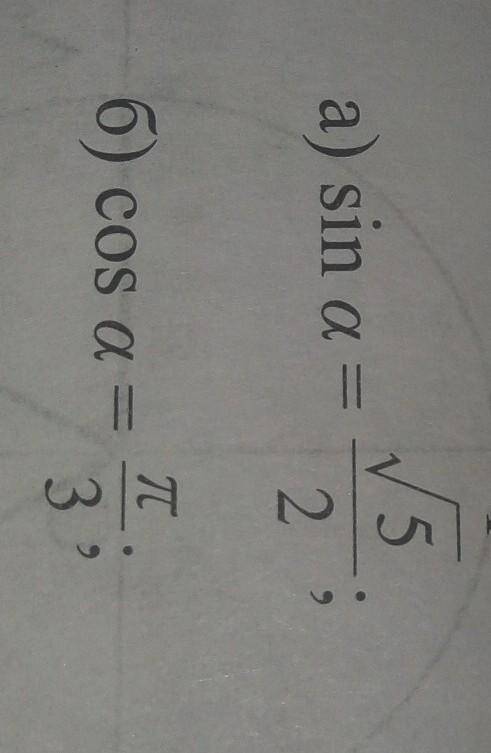 а) sin α = √5/2;
б) cos α = π/3;